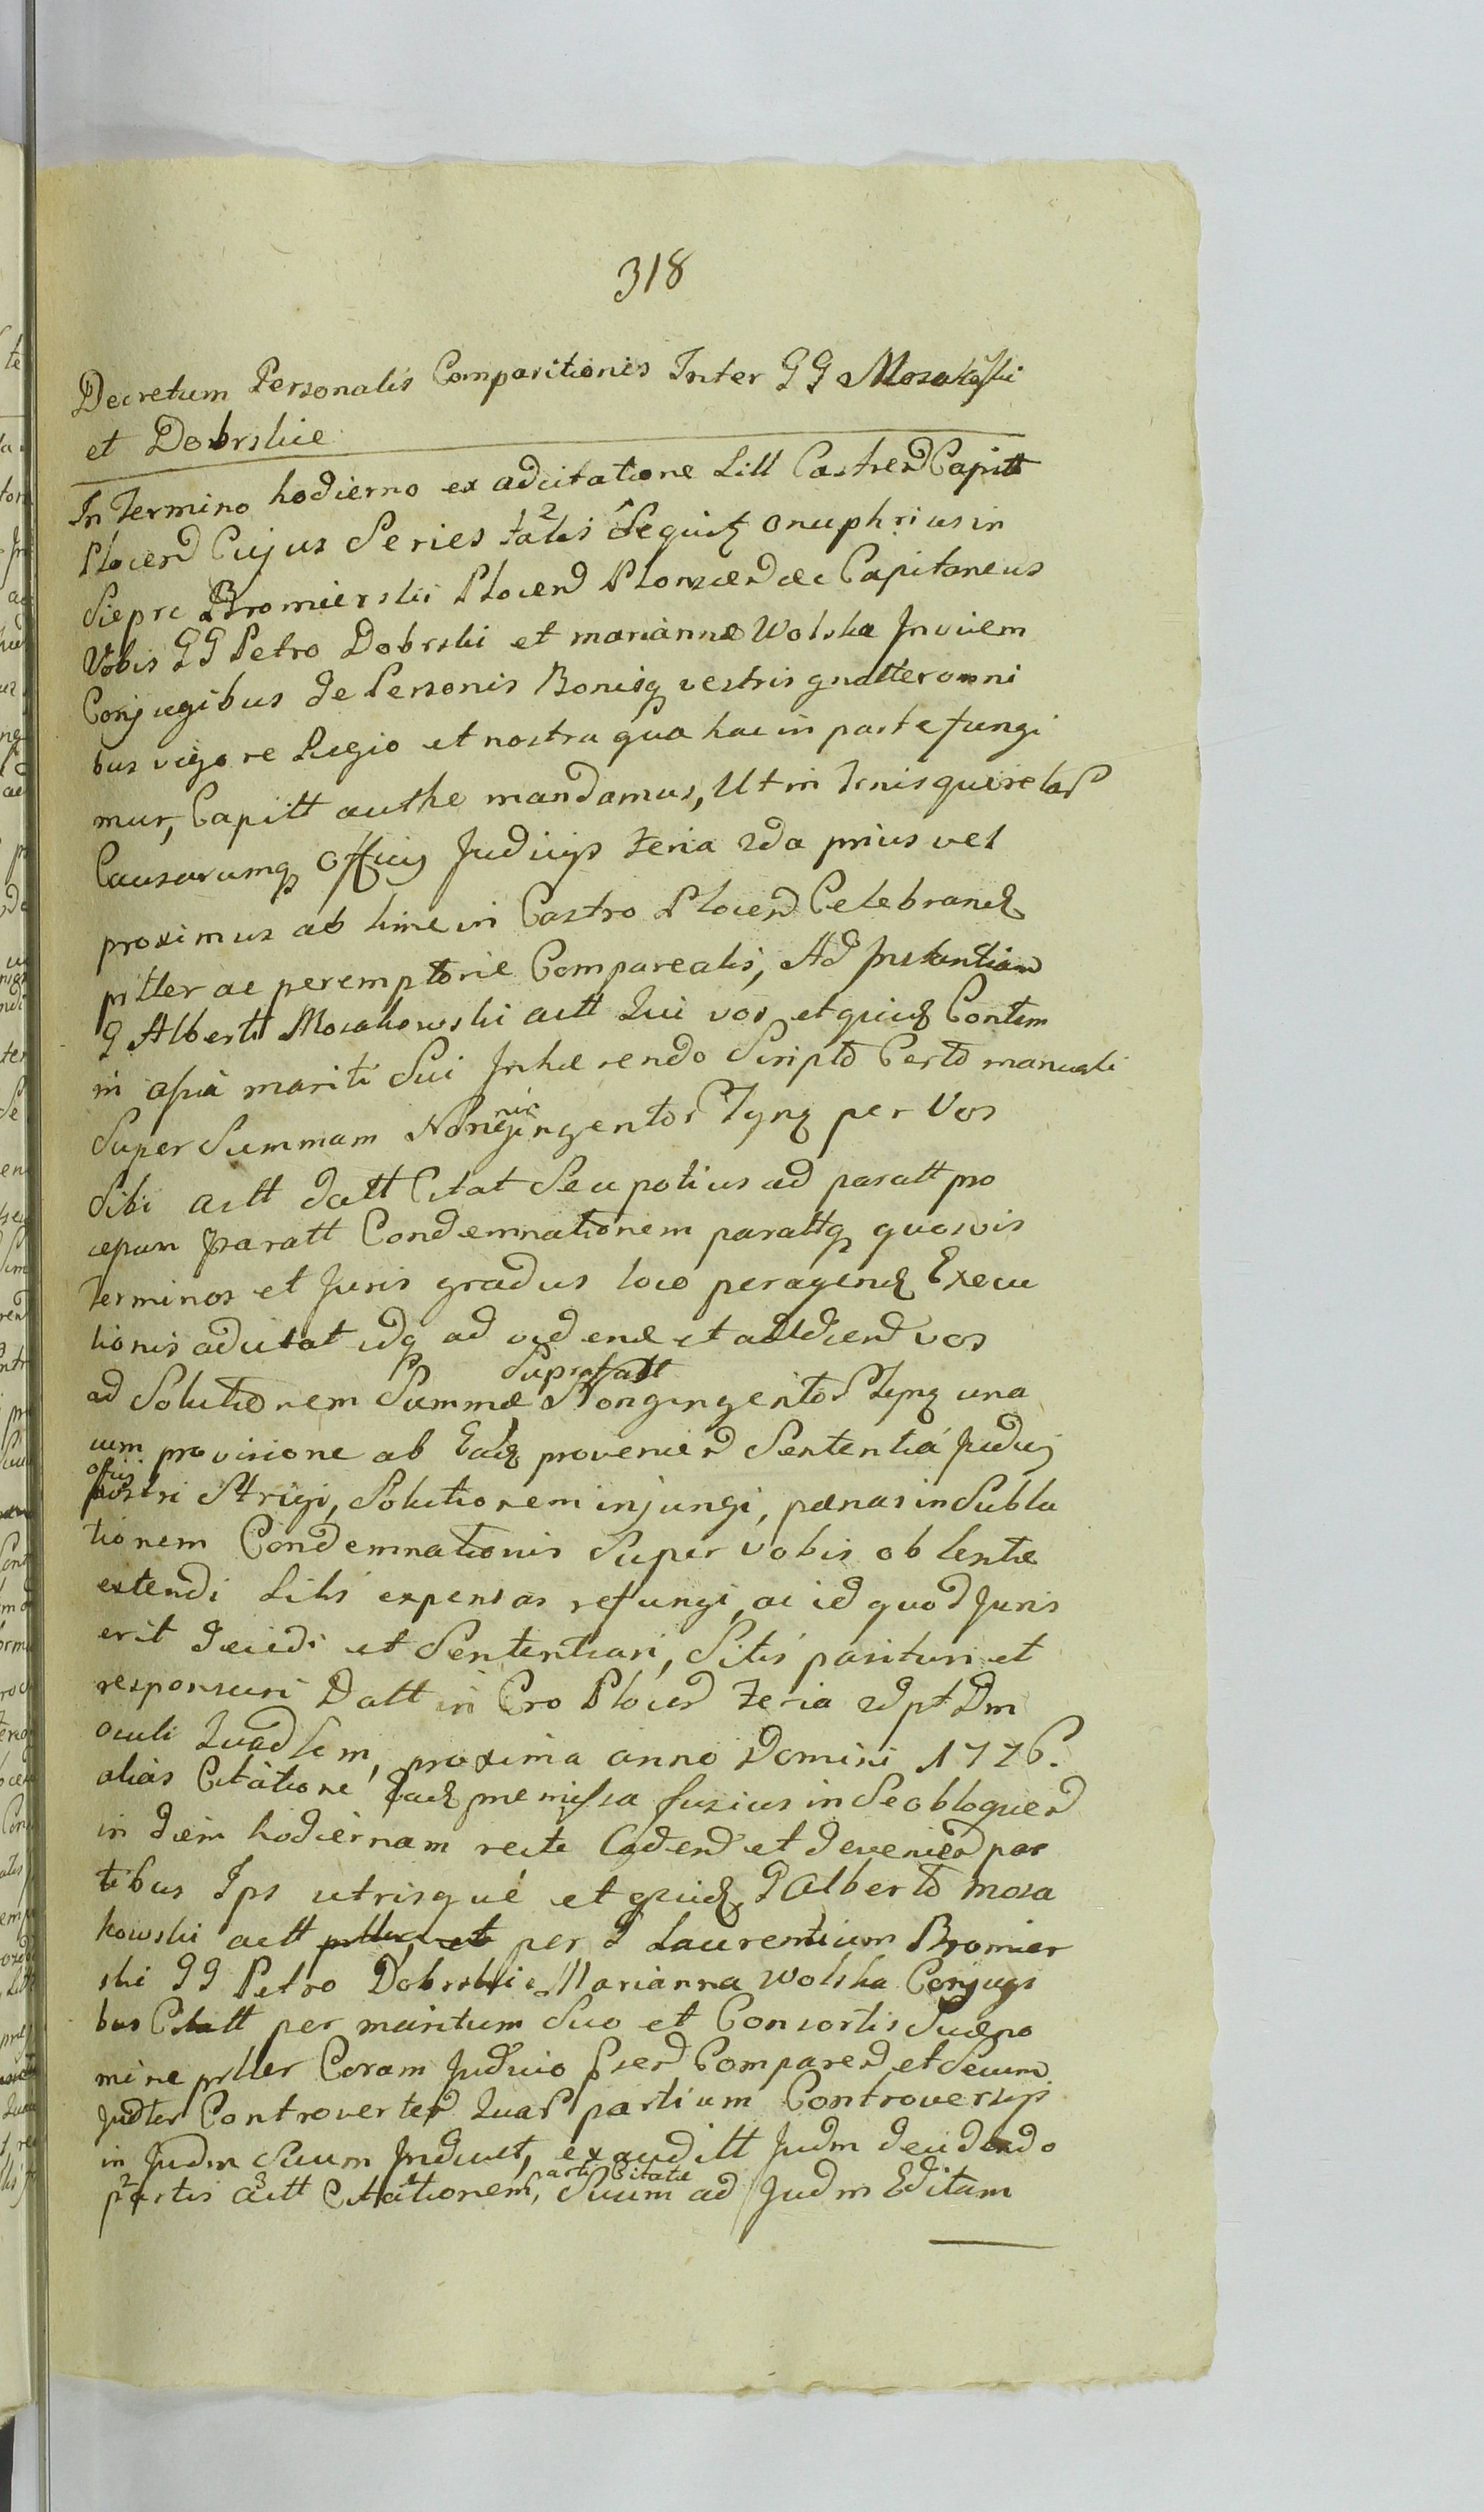 318
Decretum Personalis Comparitionis Inter GG Mosakoski
et Dobrskie
In Termino hodierno ex adcitatione Litt Castren Capitt
Plocen Cujus Series talis Sequit onuphrius in
Siepre Bromierski Plocen Plonscen &c Capitaneus
Vobis GG Petro Dobrski et marianne Wolska Invicem
Conjugibus de Personis Bonisq vestris gnatter omni
bus vigore Regio et nostra qua hac in parte fungi
mur, Capitt authe mandamus, Ut in Tenis querelar
Causarumq Officij Judicijs Feria 2da prius vel
proximus ab hinc in Castro Plocen Celebrand
pitter ac peremptorie Compareatis, Ad Instantiam
G Alberti Mosakowski actt Qui vos et quid Contem
in assia mariti Sui Inhærendo Scripto Certo manuali
Super Summam Nongingentor Tynq per Vos
Sibi actt datt Citat Seu potius ad paratt pro
cepum paratt Condemnationem parattq quosvis
Terminos et Juris gradus loco peragend Execu
tionis adcitat idq ad vidend et audiend vos
ad Solutionem Summæ Suprafatt Nongingentor Tynq una
cum provisione ab Eadz provenien Sententia Judicij
nostri offici Strigi, Solutionem injungi, pænas in Subla
tionem Condemnationis Super vobis obtentæ
extendi Litis expensas refungi, ac id quod Juris
erit decidi et Sententiari, Sitis parituri et
responsuri Datt in Cro Plocen Feria 2d pt Dm
oculi Quadlem, proxima anno Domini 1776.
alias Citatione Eadz premissa fusius in Se obloquen
in diem hodiernam recte Caden et devenien par
tibus Ips utrisque et quidz G Alberto mosa
kowski actt per G Laurentium Bromier
ski GG Petro Dobrski e Marianna Wolska Conjugi
bus Citatt per maritum Suo et Consortis Suæ no
mine pitter Coram Judicio Psen Comparen et Secum
Judter Controverten Quar partium Controversijs
in Judm Suum Induct, exauditt Judm decidendo
partis actt Citationem, parti Citate Suum ad Judm Editam